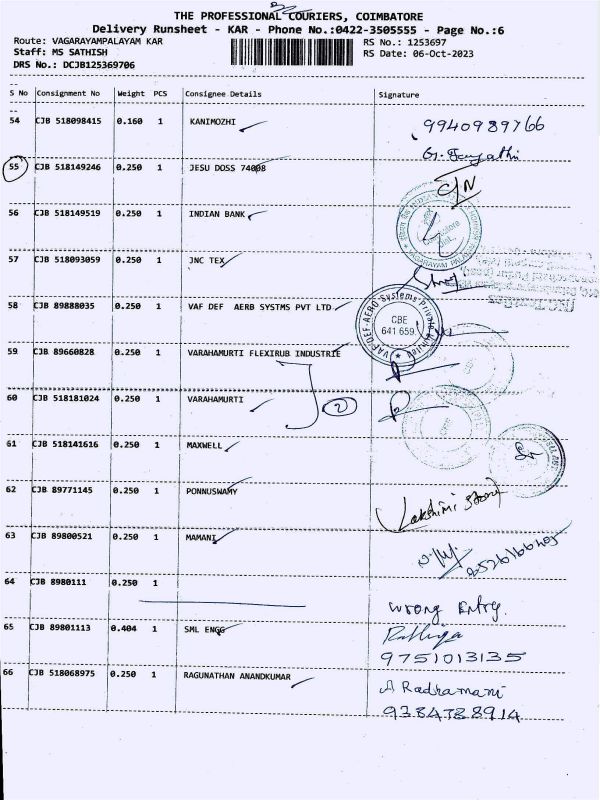 THE PROFESSIONAL COURIERS, COIMBATORE
Delivery Runsheet - KAR - Phone No.:0422-3505555 - Page No.:6
Route: VAGARAYAMPALAYAM KAR RS No.: 1253697
Staff: MS SATHISH RS Date: 06-Oct-2023
DRS No.: DCJB125369706
S No Consignment No Weight PCS Consignee Details Signature
54 CJB 518098415 0.160 1 KANIMOZHI 9940989766
55 CJB 518149246 0.250 1 JESU DOSS 74098 C/N
56 CJB 518149519 0.250 1 INDIAN BANK
57 CJB 518093059 0.250 1 JNC TEX
58 CJB 89888035 0.250 1 VAF DEF AERB SYSTMS PVT LTD
VAF-DEF-AERO Systems Private Limited
CBE
641 659.
59 CJB 89660828 0.250 1 VARAHAMURTI FLEXIRUB INDUSTRIE
2
60 CJB 518181024 0.250 1 VARAHAMURTI
61 CJB 518141616 0.250 1 MAXWELL
62 CJB 89771145 0.250 1 PONNUSWAMY Lakshimi
63 CJB 89800521 0.250 1 MAMANI
64 CJB 8980111 0.250 1 wrong Entry.
65 CJB 89801113 0.404 1 SML ENGG
9751013135
66 CJB 518068975 0.250 1 RAGUNATHAN ANANDKUMAR A Radramani
9384788914